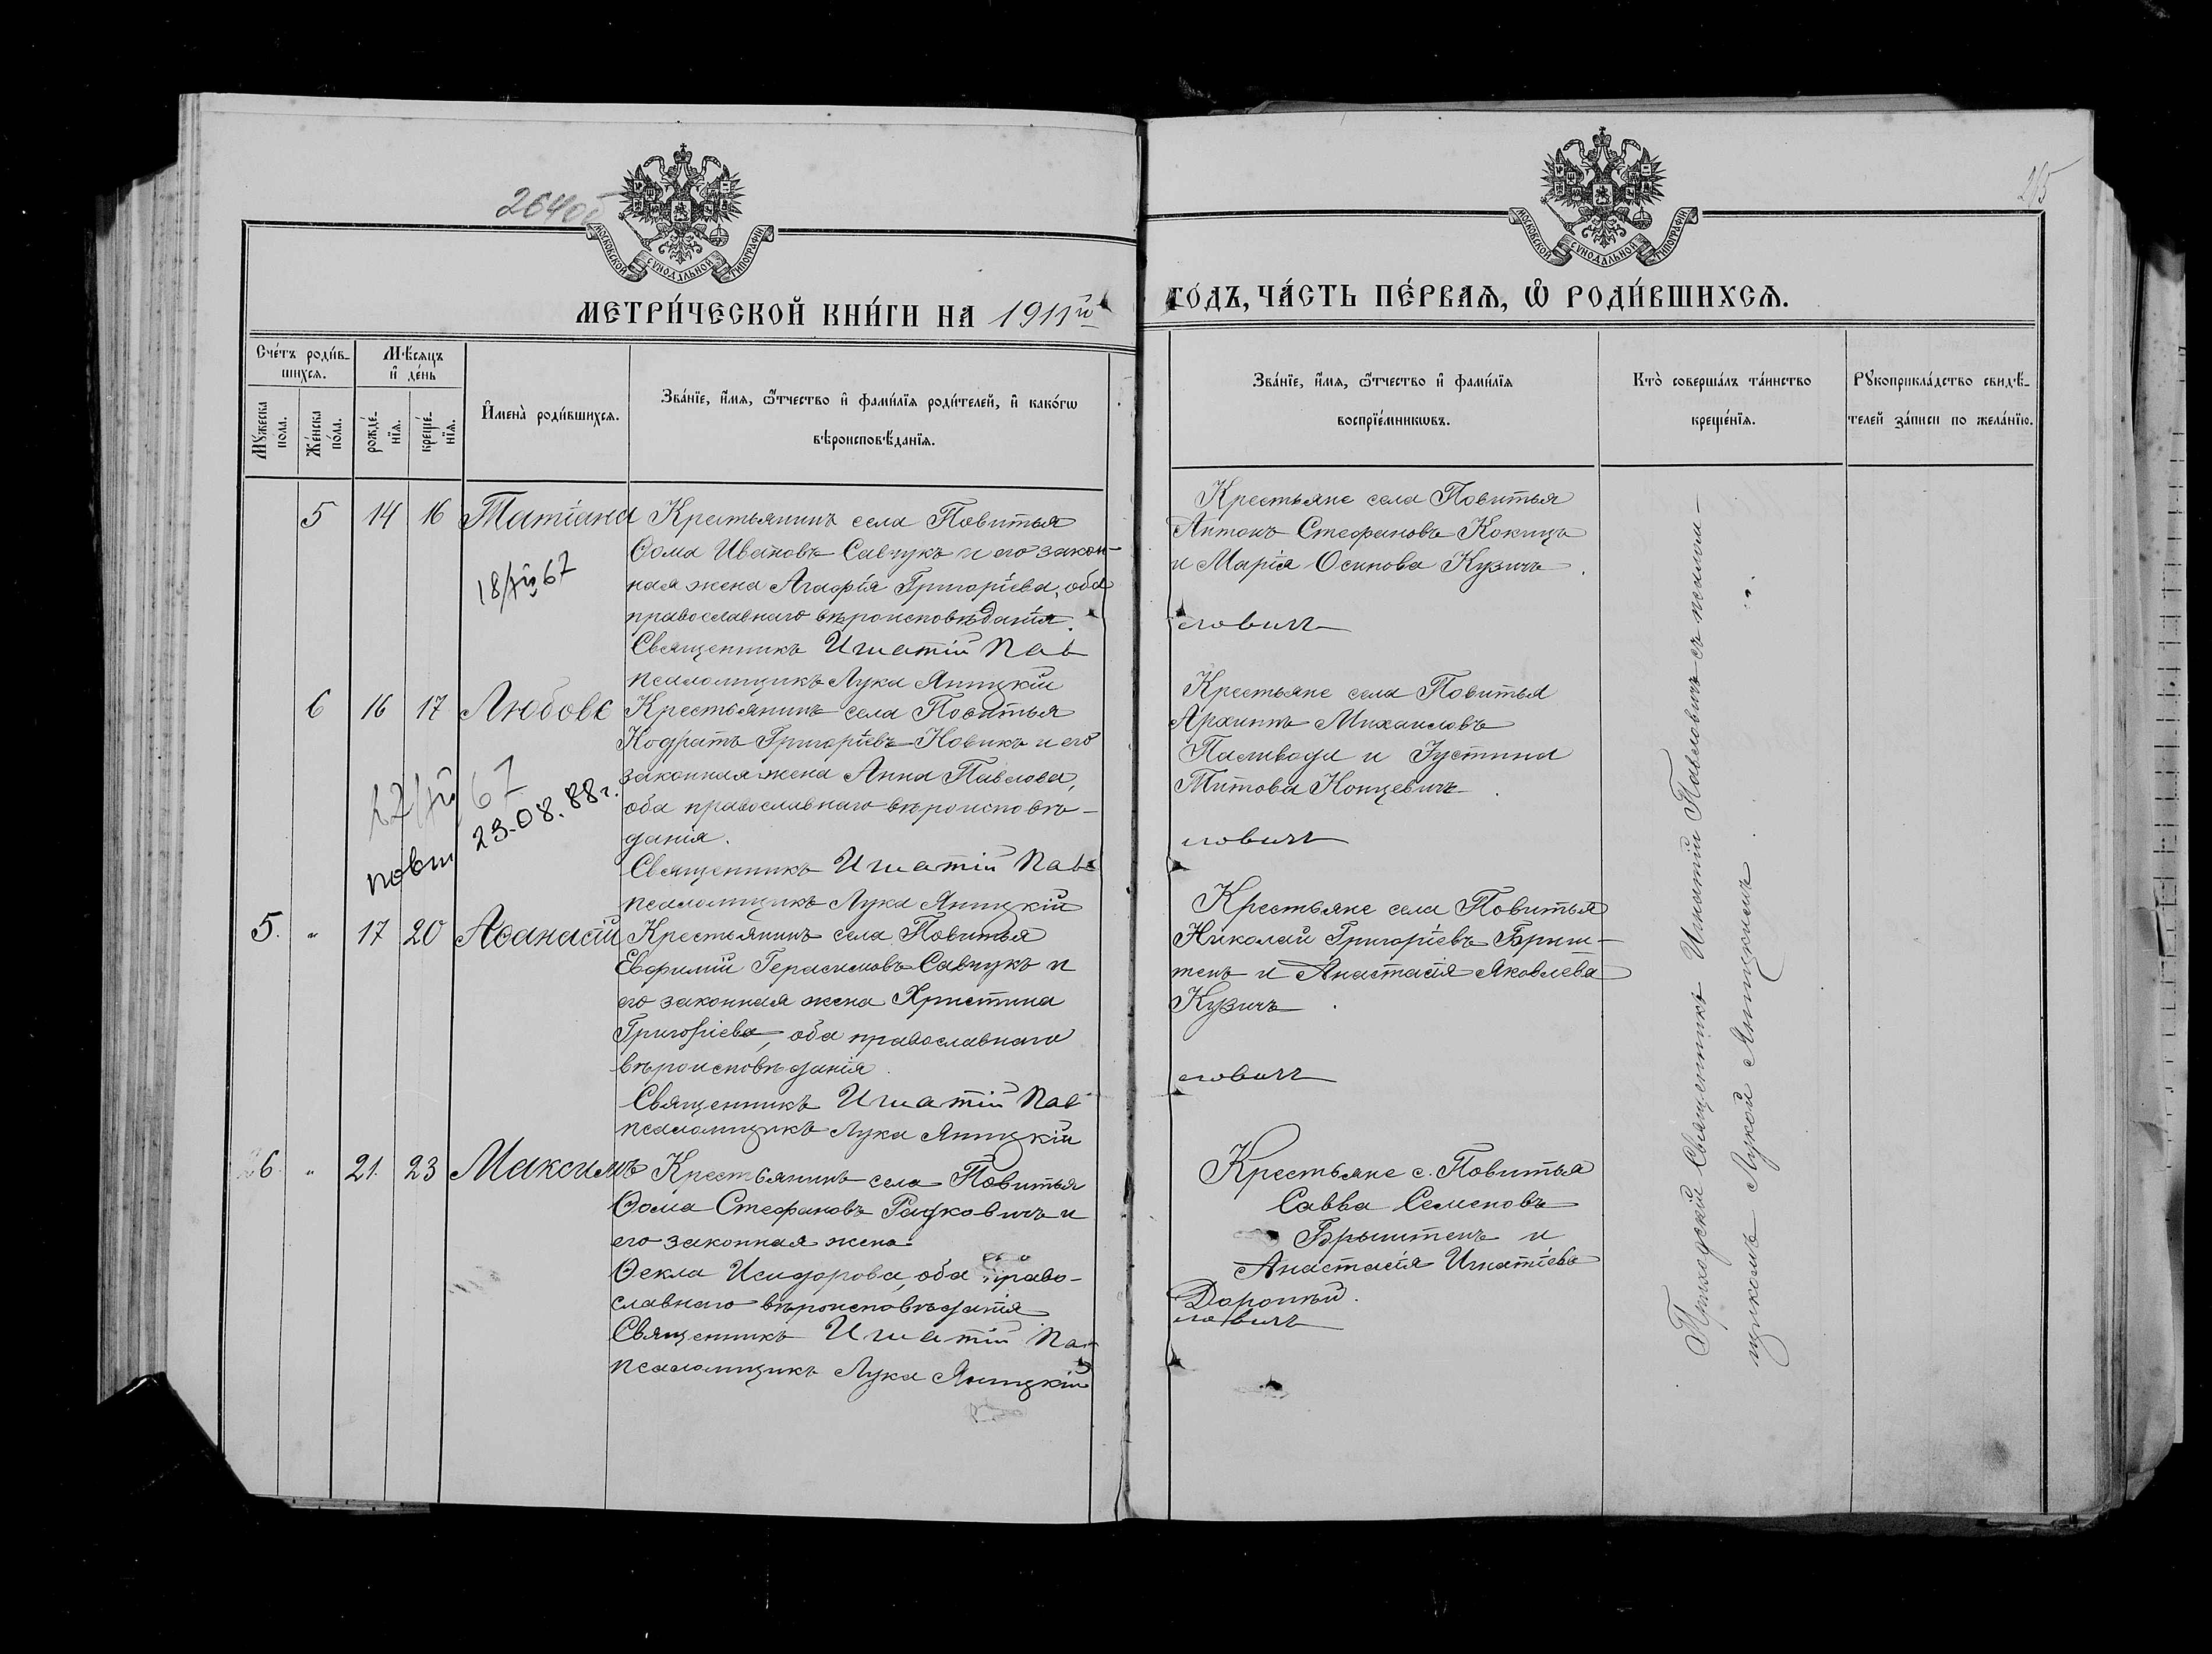 264об
215
МОСКОВСКОЙ СУНОДАЛЬНОЙ ТИПОГРАФІИ
МОСКОВСКОЙ СУНОДАЛЬНОЙ ТИПОГРАФІИ
МЕТРИ́ЧЕСКОЙ КНИ́ГИ НА 1911й
ГО́ДЪ, ЧА́СТЬ ПЕ́РВАѦ, Ѽ РОДИ́ВШИХСѦ.
Сче́тъ роди́в-
шихсѧ.
Мꙋжеска
пола.
Же́нска
по́ла.
Мѣ́сѧцъ
и҆ де́нь
рожде́-
нїѧ.
креще́-
нїѧ.
И҆мена̀ роди́вшихсѧ.
Зва́нїе, и҆́мѧ, ѻ҆́тчество и҆ фами́лїѧ роди́телей, и҆ како́гѡ
вѣроисповѣ́данїѧ.
Зва́нїе, и҆́мѧ, ѻ҆́тчество и҆ фами́лїѧ
воспрїе́мникѡвъ.
Кто̀ соверша́лъ та́инство
креще́нїѧ.
Рꙋкоприкла́дство свидѣ́-
телей за́писи по жела́нїю.
5 14 16 Татіана
18/VII 67
Крестьянинъ села Повитья
Ѳома Ивановъ Савчукъ и его закон-
ная жена Агафія Григоріева, оба
православнаго вѣроисповѣданія.
Священникъ Игнатій Пав
псаломщикъ Лука Яницкій
Крестьяне села Повитья
Антонъ Стефановъ Кокицъ
и Марія Осипова Кузичъ.
ловичъ
6 16 17 Любовь
67
повт 23.08.88г.
Крестьянинъ села Повитья
Кодратъ Григоріевъ Новикъ и его
законная жена Анна Павлова,
оба православнаго вѣроисповѣ-
данія.
Священникъ Игнатій Пав
псаломщикъ Лука Яницкій
Крестьяне села Повитья
Архиппъ Михаиловъ
Паливода и Іустина
Титова Концевичъ.
ловичъ
5. " 17 20 Аѳанасій
Крестьянинъ села Повитья
Евфимій Герасимовъ Савчукъ и
его законная жена Христина
Григоріева, оба православнаго
вѣроисповѣданія.
Священникъ Игнатій Пав
псаломщикъ Лука Яницкій
Крестьяне села Повитья
Николай Григоріевъ Бриш-
тенъ и Анастасія Яковлева
Кузичъ.
ловичъ
6. " 21. 23 Максимъ
Крестьянинъ села Повитья
Ѳома Стефановъ Радковичъ и
его законная жена
Ѳекла Исидорова, оба право-
славнаго вѣроисповѣданія
Священникъ Игнатій Пав
псаломщикъ Лука Яницкій
Крестьяне с. Повитья
Савва Семеновъ
Брыштенъ и
Анастасія Игнатіева
ловичъ
Приходскій Священникъ Игнатій Павловичъ съ псалом-
щикомъ Лукой Яницкимъ.